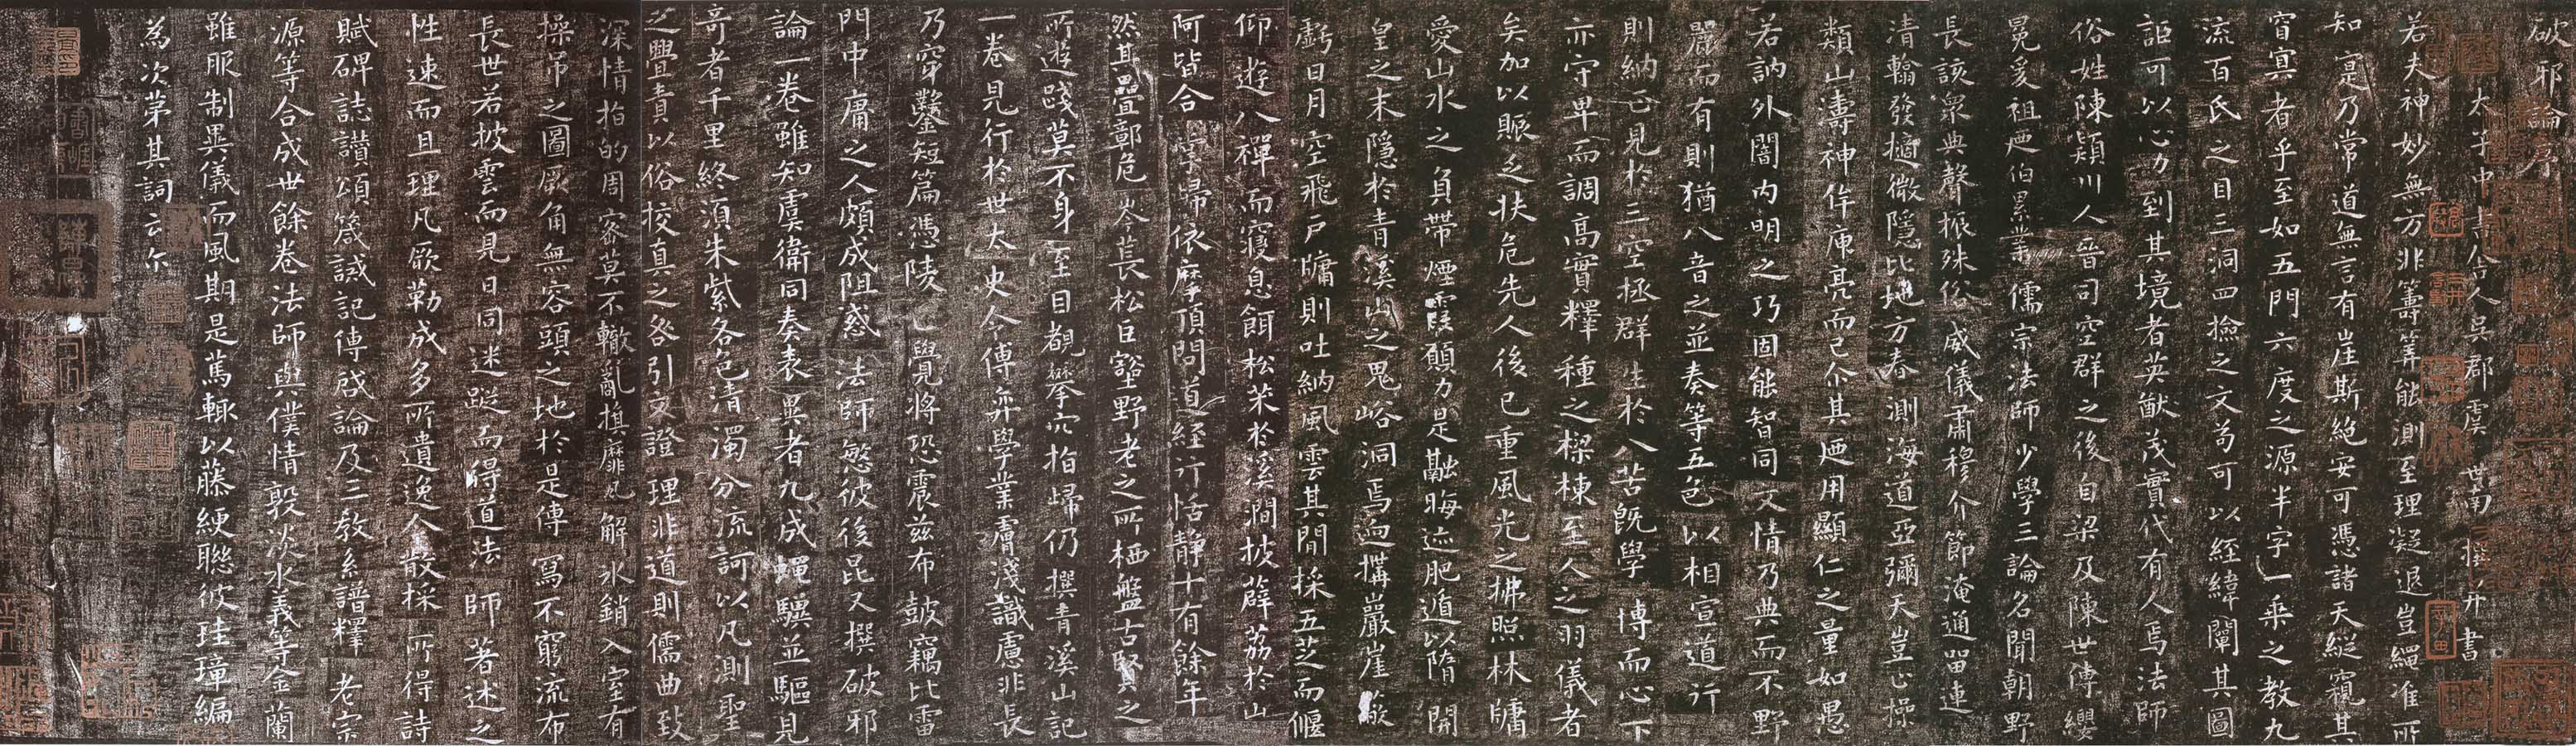 破邪論序
太子中書舍人吳郡虞世南撰并書
若夫神妙無方非籌筭能測至理凝邈豈繩准所
知寔乃常道無言有崖斯絕安可憑諸天縱窺其
窅寞者乎至如五門六度之源半字一乘之教九
流百氏之目三洞四撿之文苟可以経緯闡其圖
詎可以心力到其境者英猷茂實代有人焉法師
俗姓陳潁川人晉司空群之後自梁及陳世傳纓
冕爰祖及伯累業儒宗法師少學三論名聞朝野
長該衆典聲振殊俗威儀肅穆介節淹通留連
清翰發擿微隱比地方春測海道亞彌天豈止操
類山濤神侔庾亮而已介其廼用顯仁之量如愚
若訥外闇內明之巧固能智同文情乃典而不野
麗而有則猶八音之並奏等五色以相宣道行
則納正見於三空拯群生於八苦旣學博而心下
亦守卑而調高實釋種之樑棟至人之羽儀者
矣加以賑乏扶危先人後己重風光之拂照林牗
愛山水之負帶煙霞願力是融晦迹肥遁以隋開
皇之末隱於青溪山之鬼峪洞焉迺搆巖崖蔽
虧日月空飛戶牗則吐納風雲其閒採五芝而偃
仰遊八禪而寢息餌松茱於溪澗披薜荔於山
阿皆合掌歸依摩頂問道経行恬靜十有餘年
然其疊嶂危岑萇松巨壑野老之所栖盤古賢之
所遊踐莫不身至目覩攀穴指歸仍撰青溪山記
一卷見行於世太史令傅弈學業膚淺識慮非長
乃穿鑿短篇憑陵正覺將恐震茲布鼓竊比雷
門中庸之人頗成阻惑法師慜彼後昆又撰破邪
論一卷雖知虞衛同奏表異者九成蝿驥並驅見
奇者千里終須朱紫各色清濁分流訶以凡測聖
之舋責以俗挍真之咎引文證理非道則儒曲致
深情指的周密莫不轍亂旗靡凡解水銷入室有
操吊之圖厥角無容頭之地於是傳寫不窮流布
長世若披雲而見日同迷蹤而得道法師著述之
性速而且理凡厥勒成多所遺逸今散採所得詩
賦碑誌讃頌箴誡記傳啓論及三教系譜釋老宗
源等合成世餘卷法師與僕情敦淡水義等金蘭
雖服制異儀而風期是篤輒以藤綆聯彼珪璋編
為次第其詞云尒